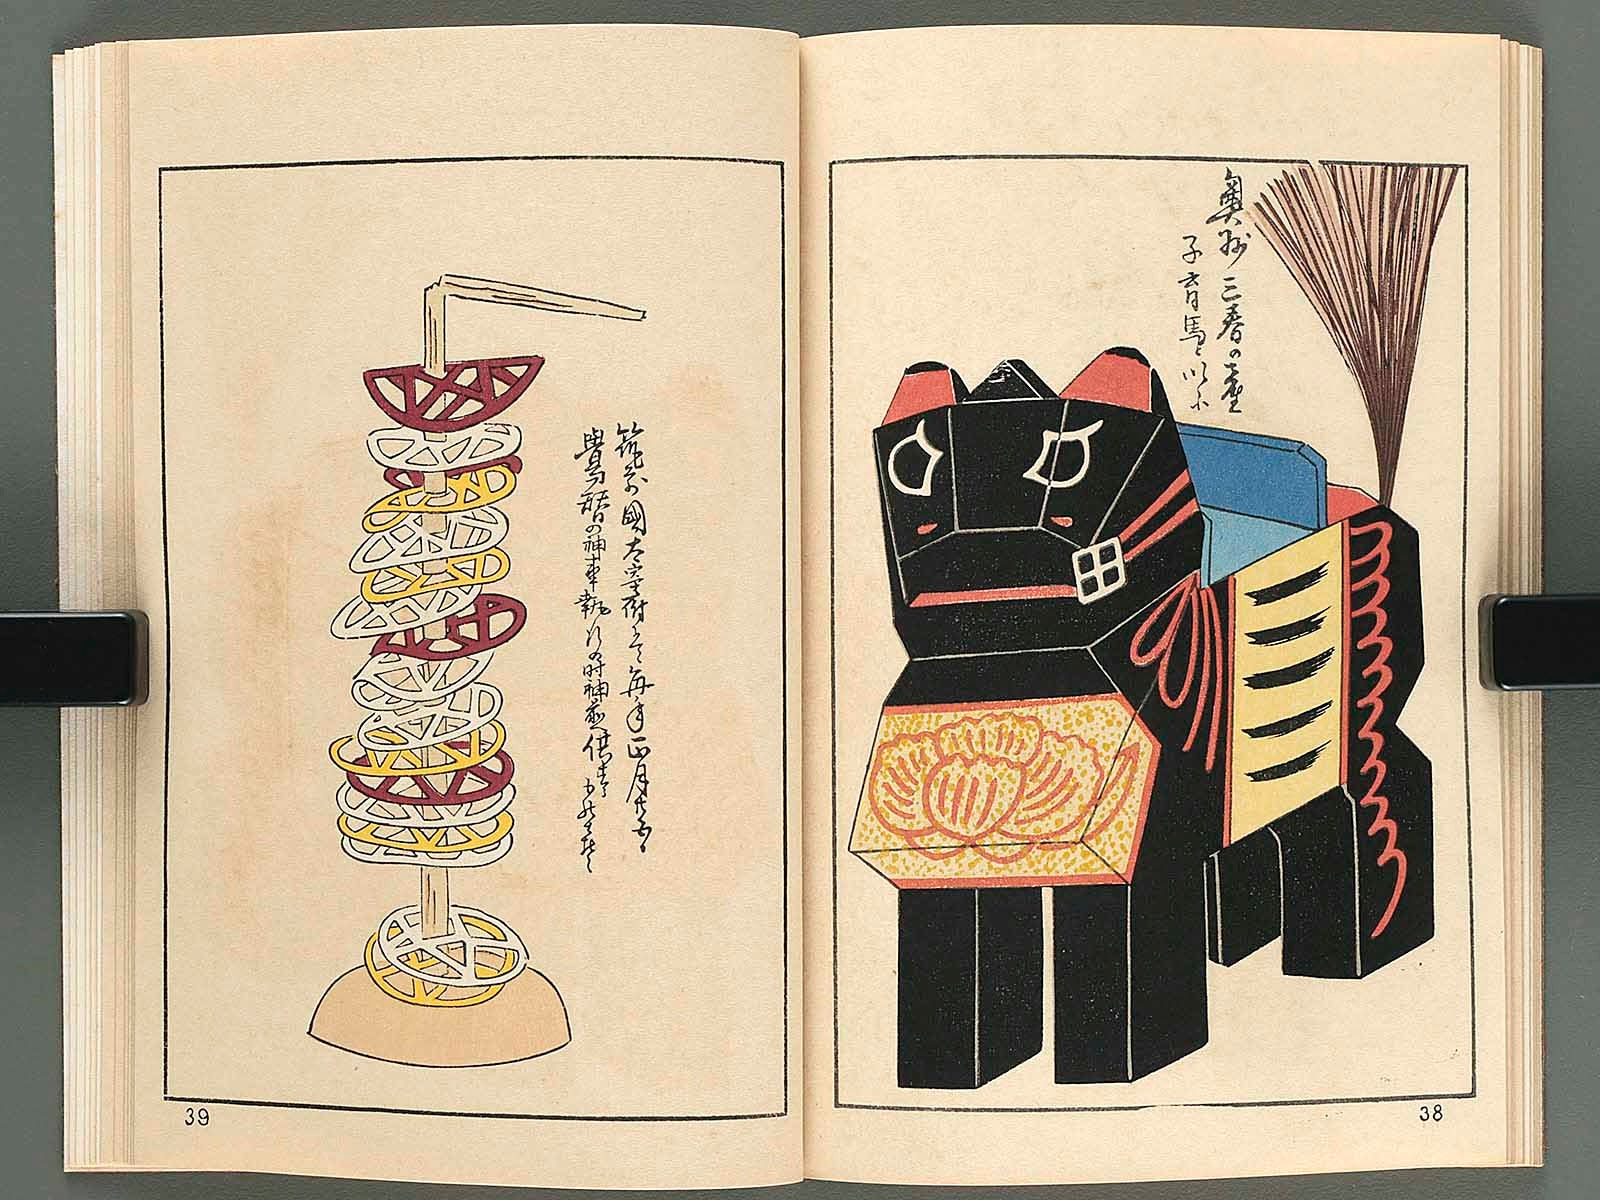 奥州三春の産
子育馬と以ふ
38
筑前國太宰府にて毎年正月廿五
鷽替の神事執行の時神前供
39